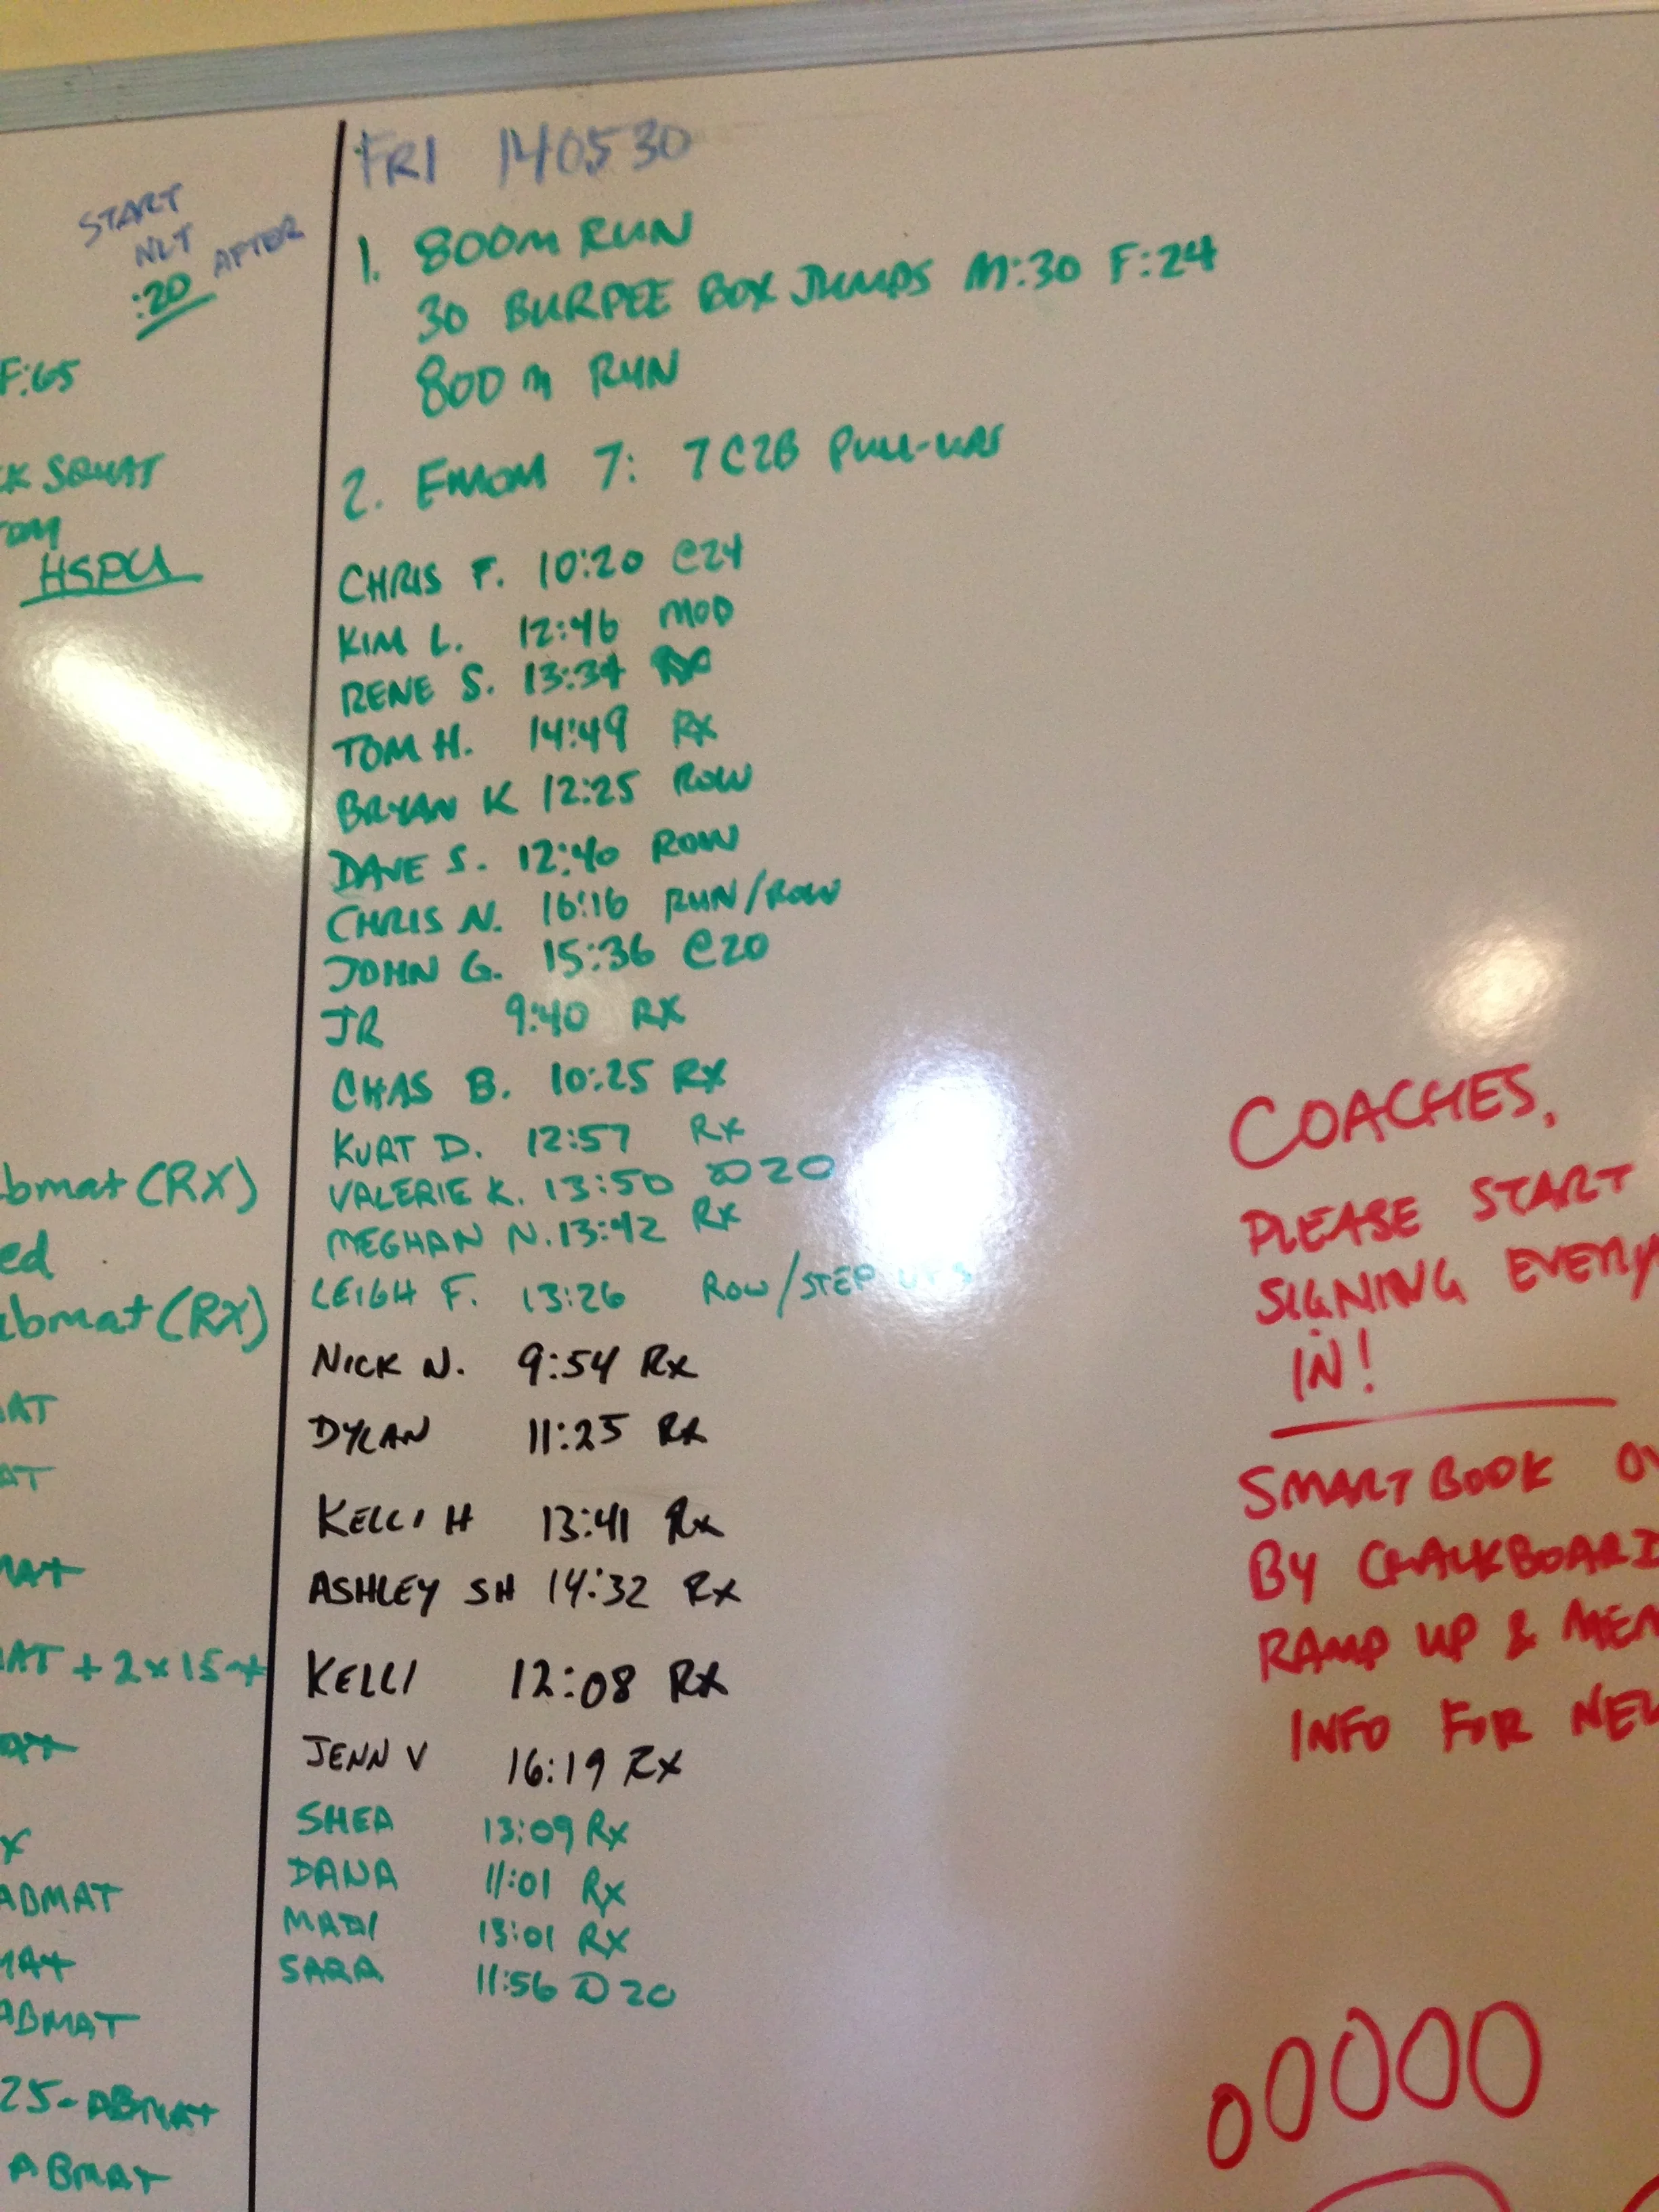 START
NLT
:20 AFTER
F:65
SQUAT
HSPU
bmat (RX)
ed
abmat (RX)
AT
AT
MAT
MAT + 2 x 15
X
ABMAT
MAT
ABMAT
25 - ABMAT
ABMAT
FRI 140530
1. 800m RUN
30 BURPEE BOX JUMPS M:30 F:24
800m RUN
2. EMOM 7: 7 C2B PULL-UPS
CHRIS F. 10:20 @24
KIM L. 12:46 MOD
RENE S. 13:34 RX
TOM H. 14:49 RX
BRYAN K 12:25 ROW
DAVE S. 12:40 ROW
CHRIS N. 16:16 RUN/ROW
JOHN G. 15:36 @20
JR 9:40 RX
CHAS B. 10:25 RX
KURT D. 12:57 RX
VALERIE K. 13:50 @20
MEGHAN N. 13:42 RX
LEIGH F. 13:26 ROW/STEP UPS
NICK N. 9:54 RX
DYLAN 11:25 RX
KELLI H 13:41 RX
ASHLEY SH 14:32 RX
KELLI 12:08 RX
JENN V 16:19 RX
SHEA 13:09 RX
DANA 11:01 RX
MADI 13:01 RX
SARA 11:56 @20
COACHES,
PLEASE START
SIGNING EVERY
IN!
SMARTBOOK
BY CHALKBOARD
RAMP UP & MEM
INFO FOR NEW